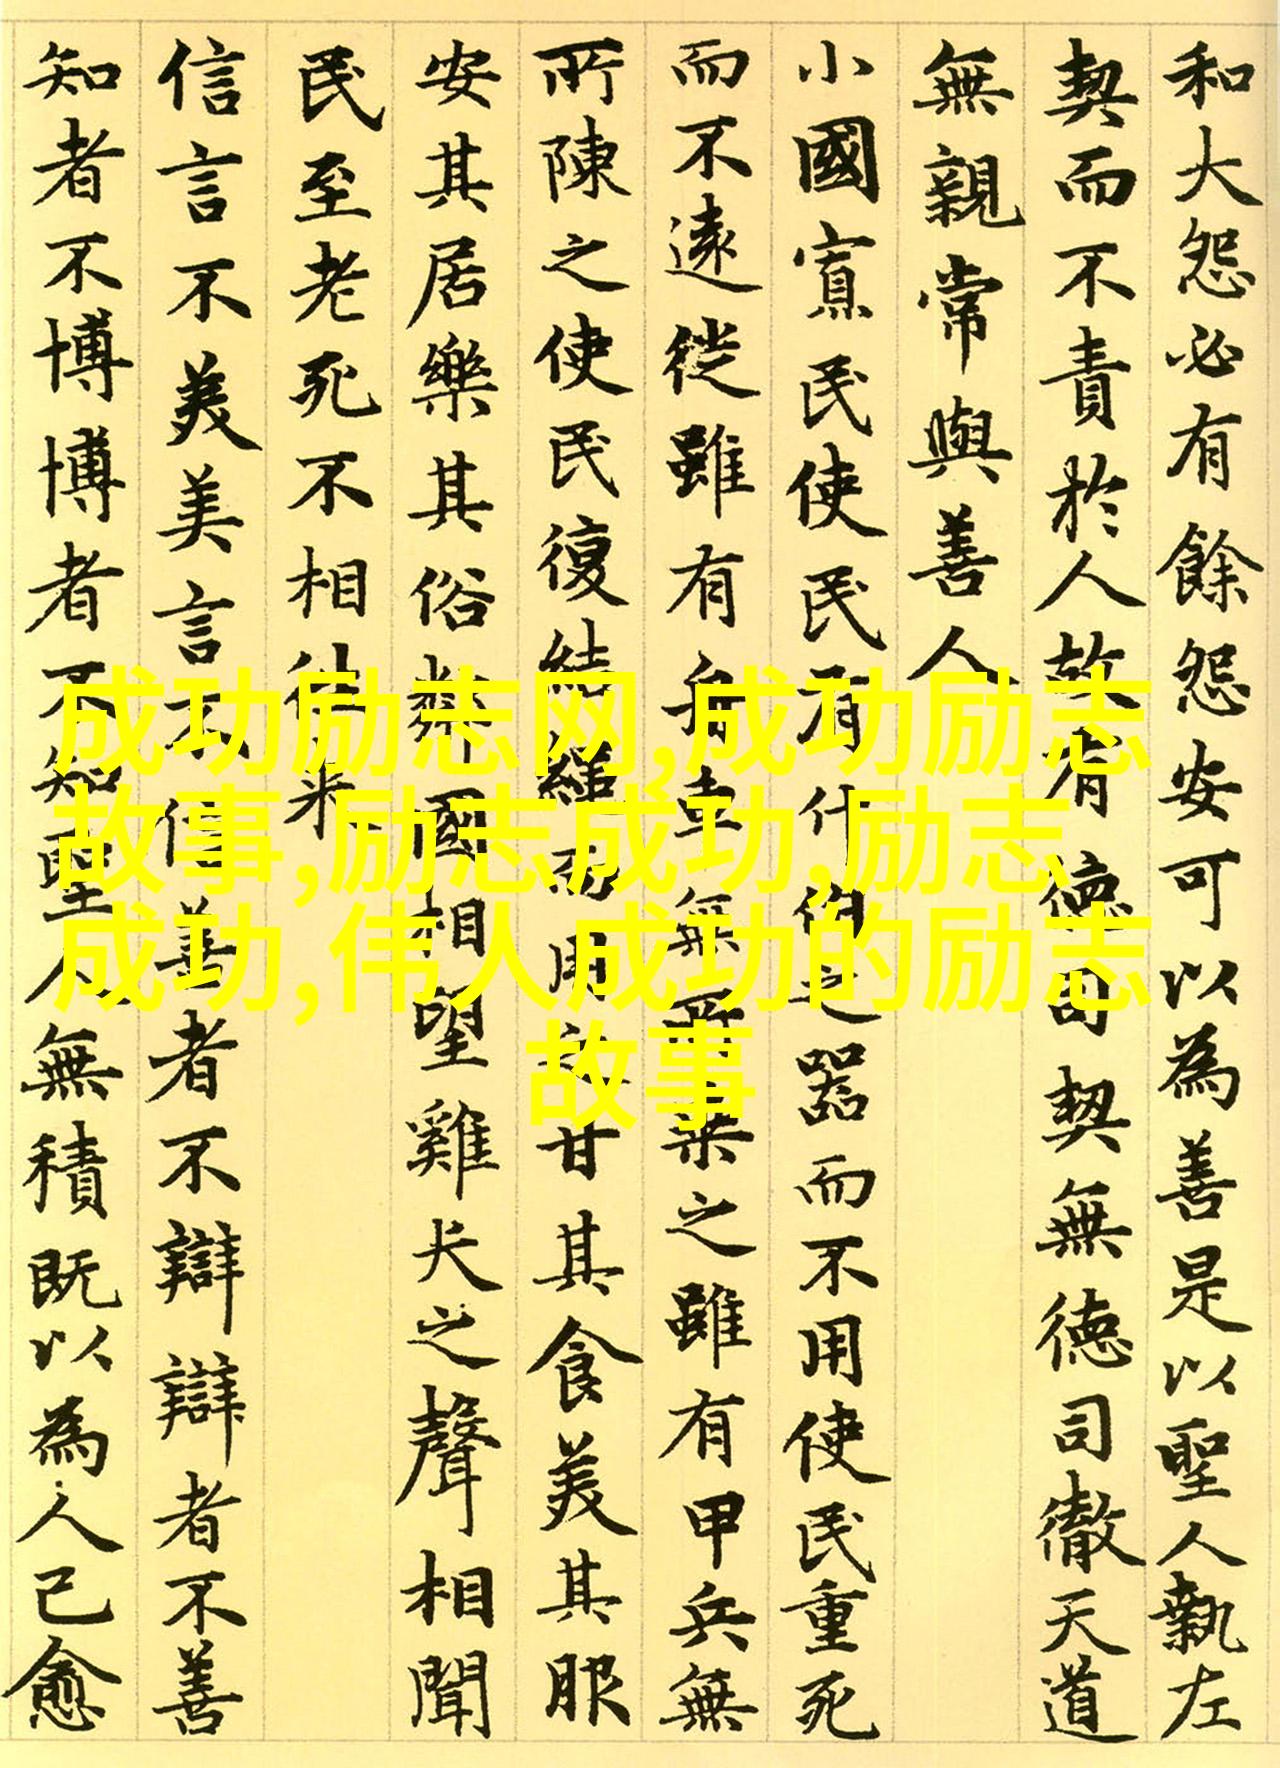 和大怨必有餘怨安可以為善是以聖人執左
契而不責於人故有德司契無德司徹天道
無親常與善人
小國寡民使民有什伯之器而不用使民重死
而不遠徙雖有舟車無所乘之雖有甲兵無
所陳之使民復結繩而用之甘其食美其服
安其居樂其俗鄰國相望雞犬之聲相聞
民至老死不相往來
信言不美美言不信善者不辯辯者不善
知者不博博者不知聖人無積既以為人己愈
成功励志网,成功励志
故事,励志成功,励志
成功,伟人成功的励志
故事